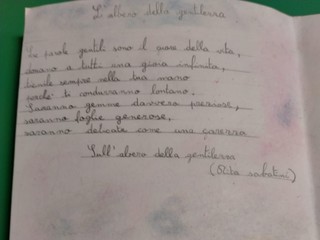 L'albero della gentilezza
Le parole gentili sono il cuore della vita,
donano a tutti una gioia infinita,
tienile sempre nella tua mano
perché ti condurranno lontano.
Saranno gemme davvero preziose,
saranno foglie generose,
saranno delicate come una carezza
Sull'albero della gentilezza
(Rita Sabatini)